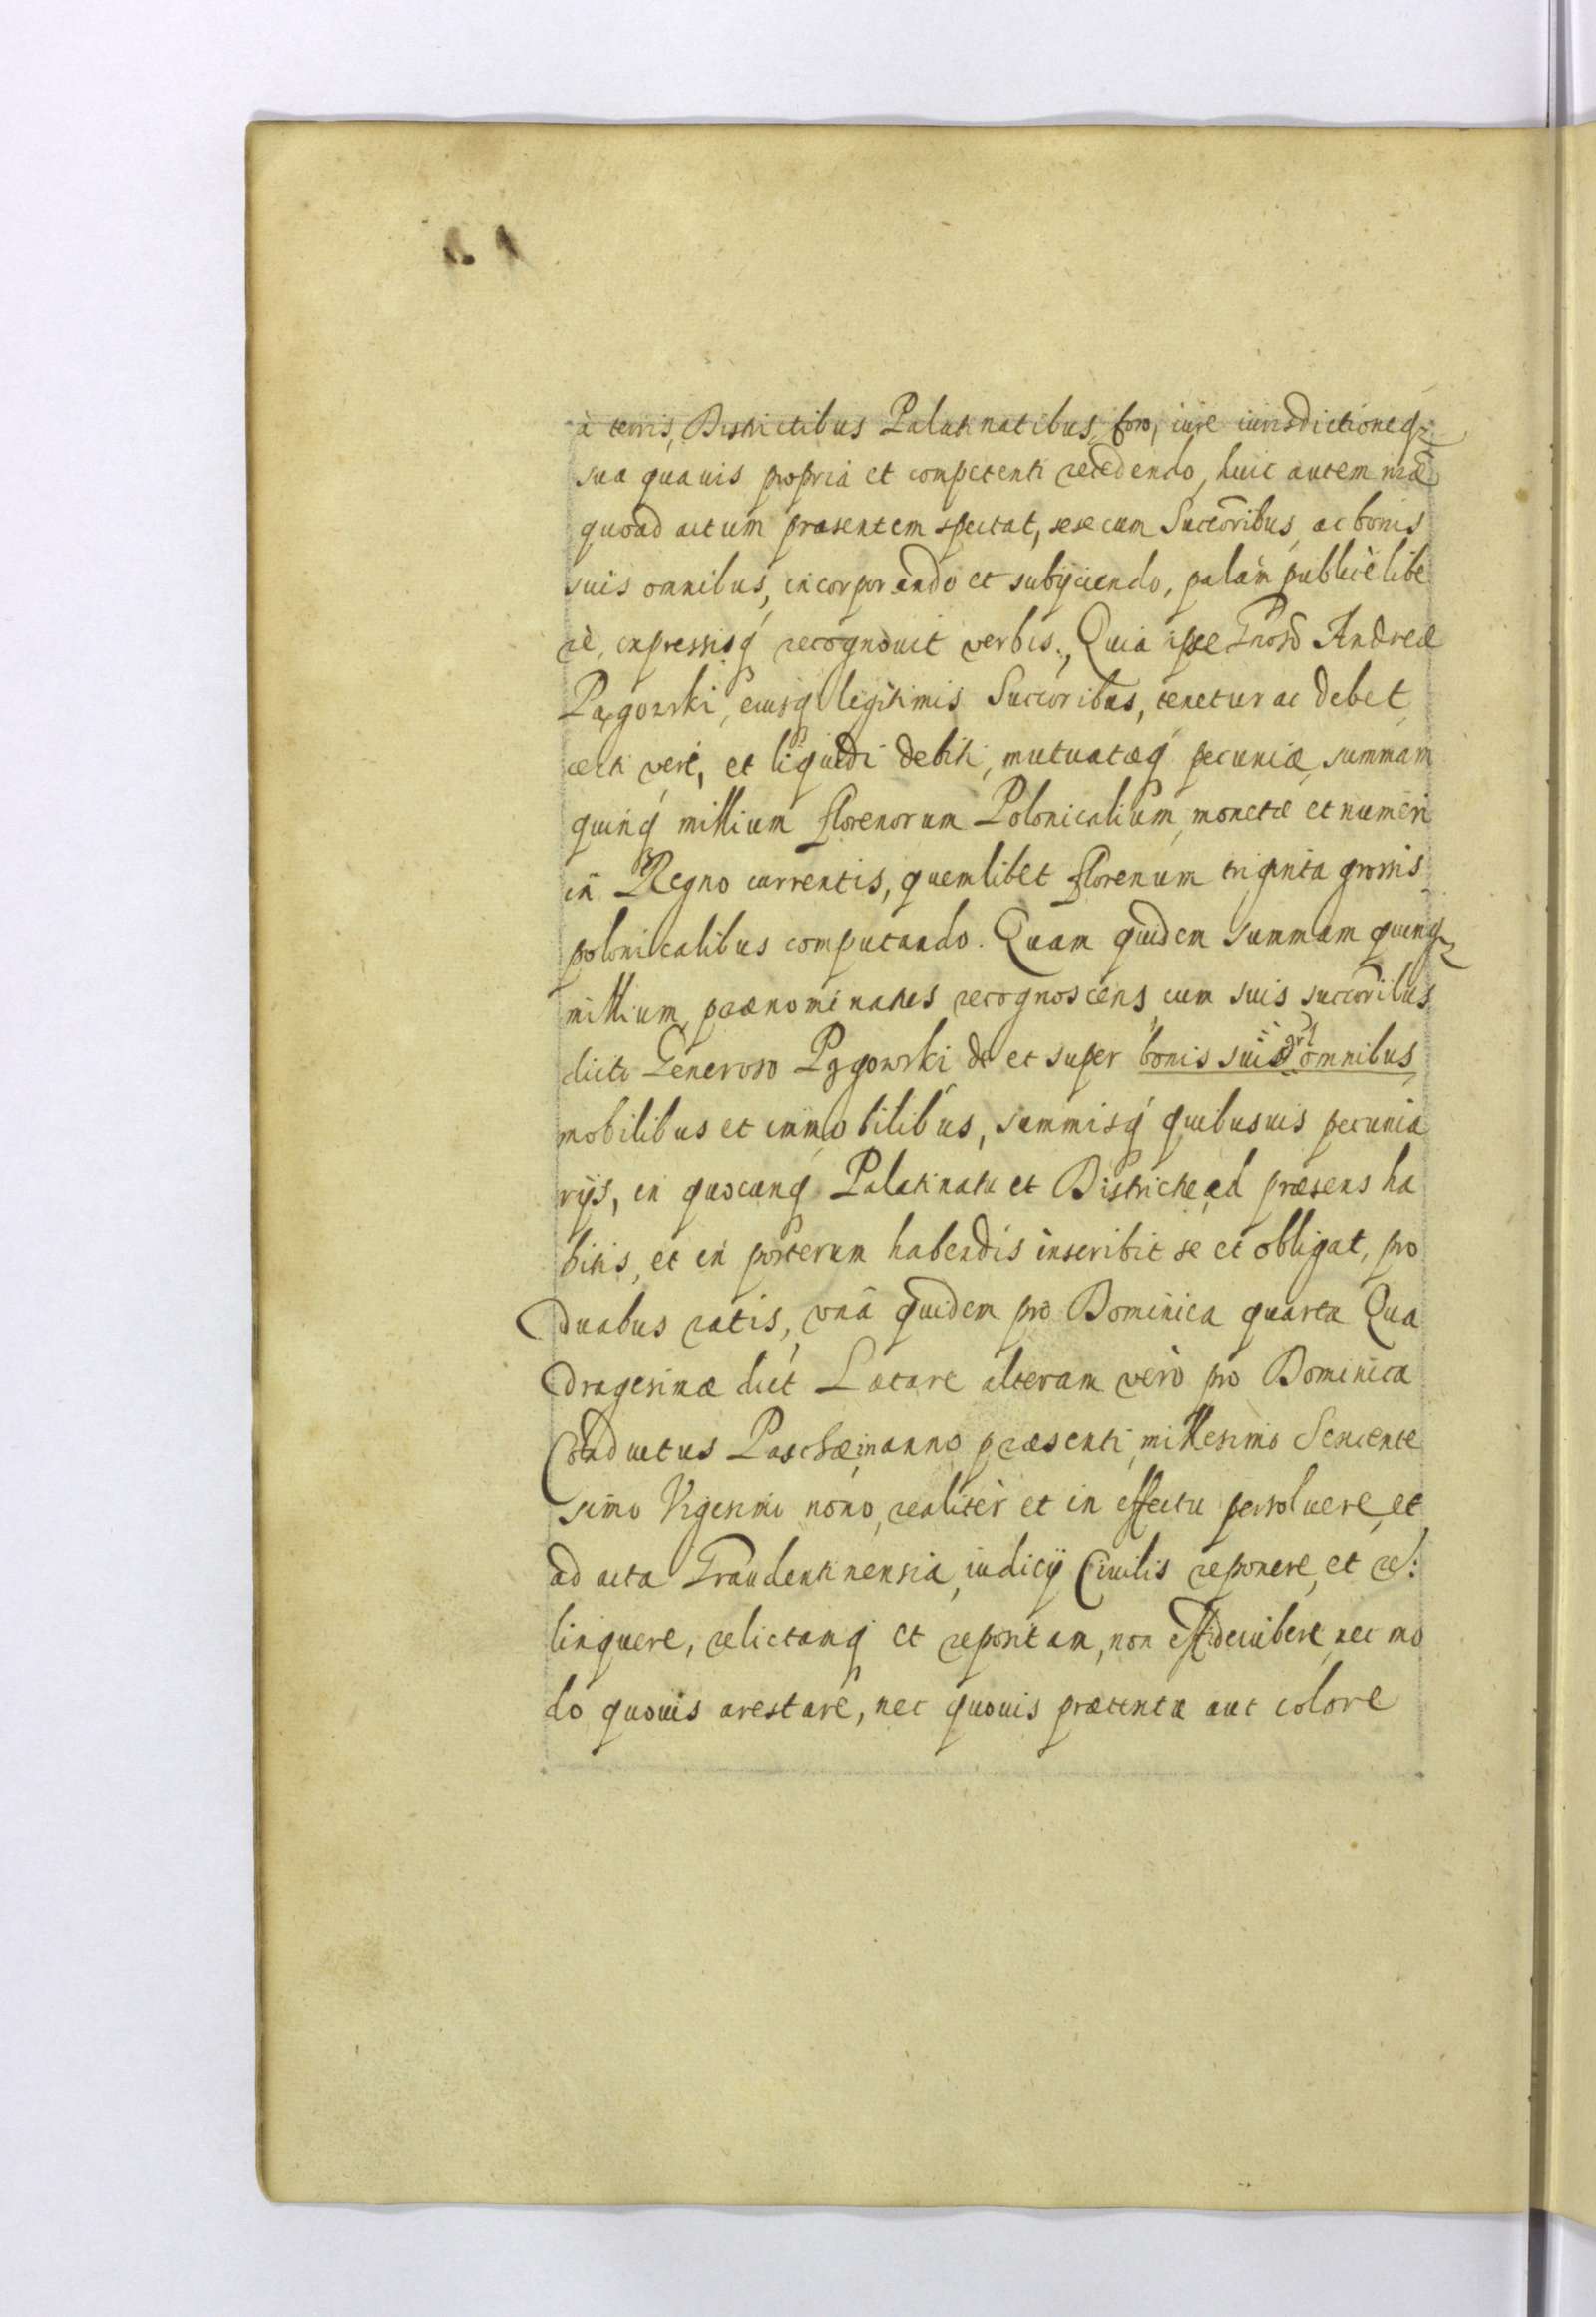 à terris, Districtibus Palatinatibus, foro, iure iurisdictioneq́ꝫ
sua quauis propria et competenti recedendo, huic autem nrae
quoad actum praesentem spectat, sese cum Succōribus, ac bonis
suis omnibus, incorporando et subÿciendo, palàm publicè libe
rè, expressisq́ recognouit verbis. Quia ipse Gnoso Andreae
Pągowski, eiusq́ legitimis Succoribus, tenetur ac debet,
certi veri, et liquidi debiti, mutuataeq́ pecuniae, summam
quinq́ millium florenorum Polonicalium, monetae et numeri
in Regno currentis, quemlibet florenum triginta grossis
polonicalibus computando. Quam quidem summam quinqꝫ
millium, praenominatus recognoscens, cum suis succoribus
dicto Generoso Pągowski de et super bonis suis grl omnibus,
mobilibus et immobilibus, summisq́ quibusuis pecunia
rÿs, in quocunq́ Palatinatu et Districtu, ad praesens ha
bitis, et in posterum habendis inscribit se et obligat, pro
duabus ratis, vnā quidem pro Dominica quarta Qua
dragesimae dict Laetare alteram verò pro Dominica
Conductus Paschae, in anno praesenti, millesimo Sexcente
simo Vigesimo nono, realitèr et in effectu persoluere, et
ad acta Graudentinensia, iudicÿ Ciuilis reponere, et re:
linquere, relictamq́ et repositam, non est, nec mo
do quouis arestare, nec quouis praetextu aut colore